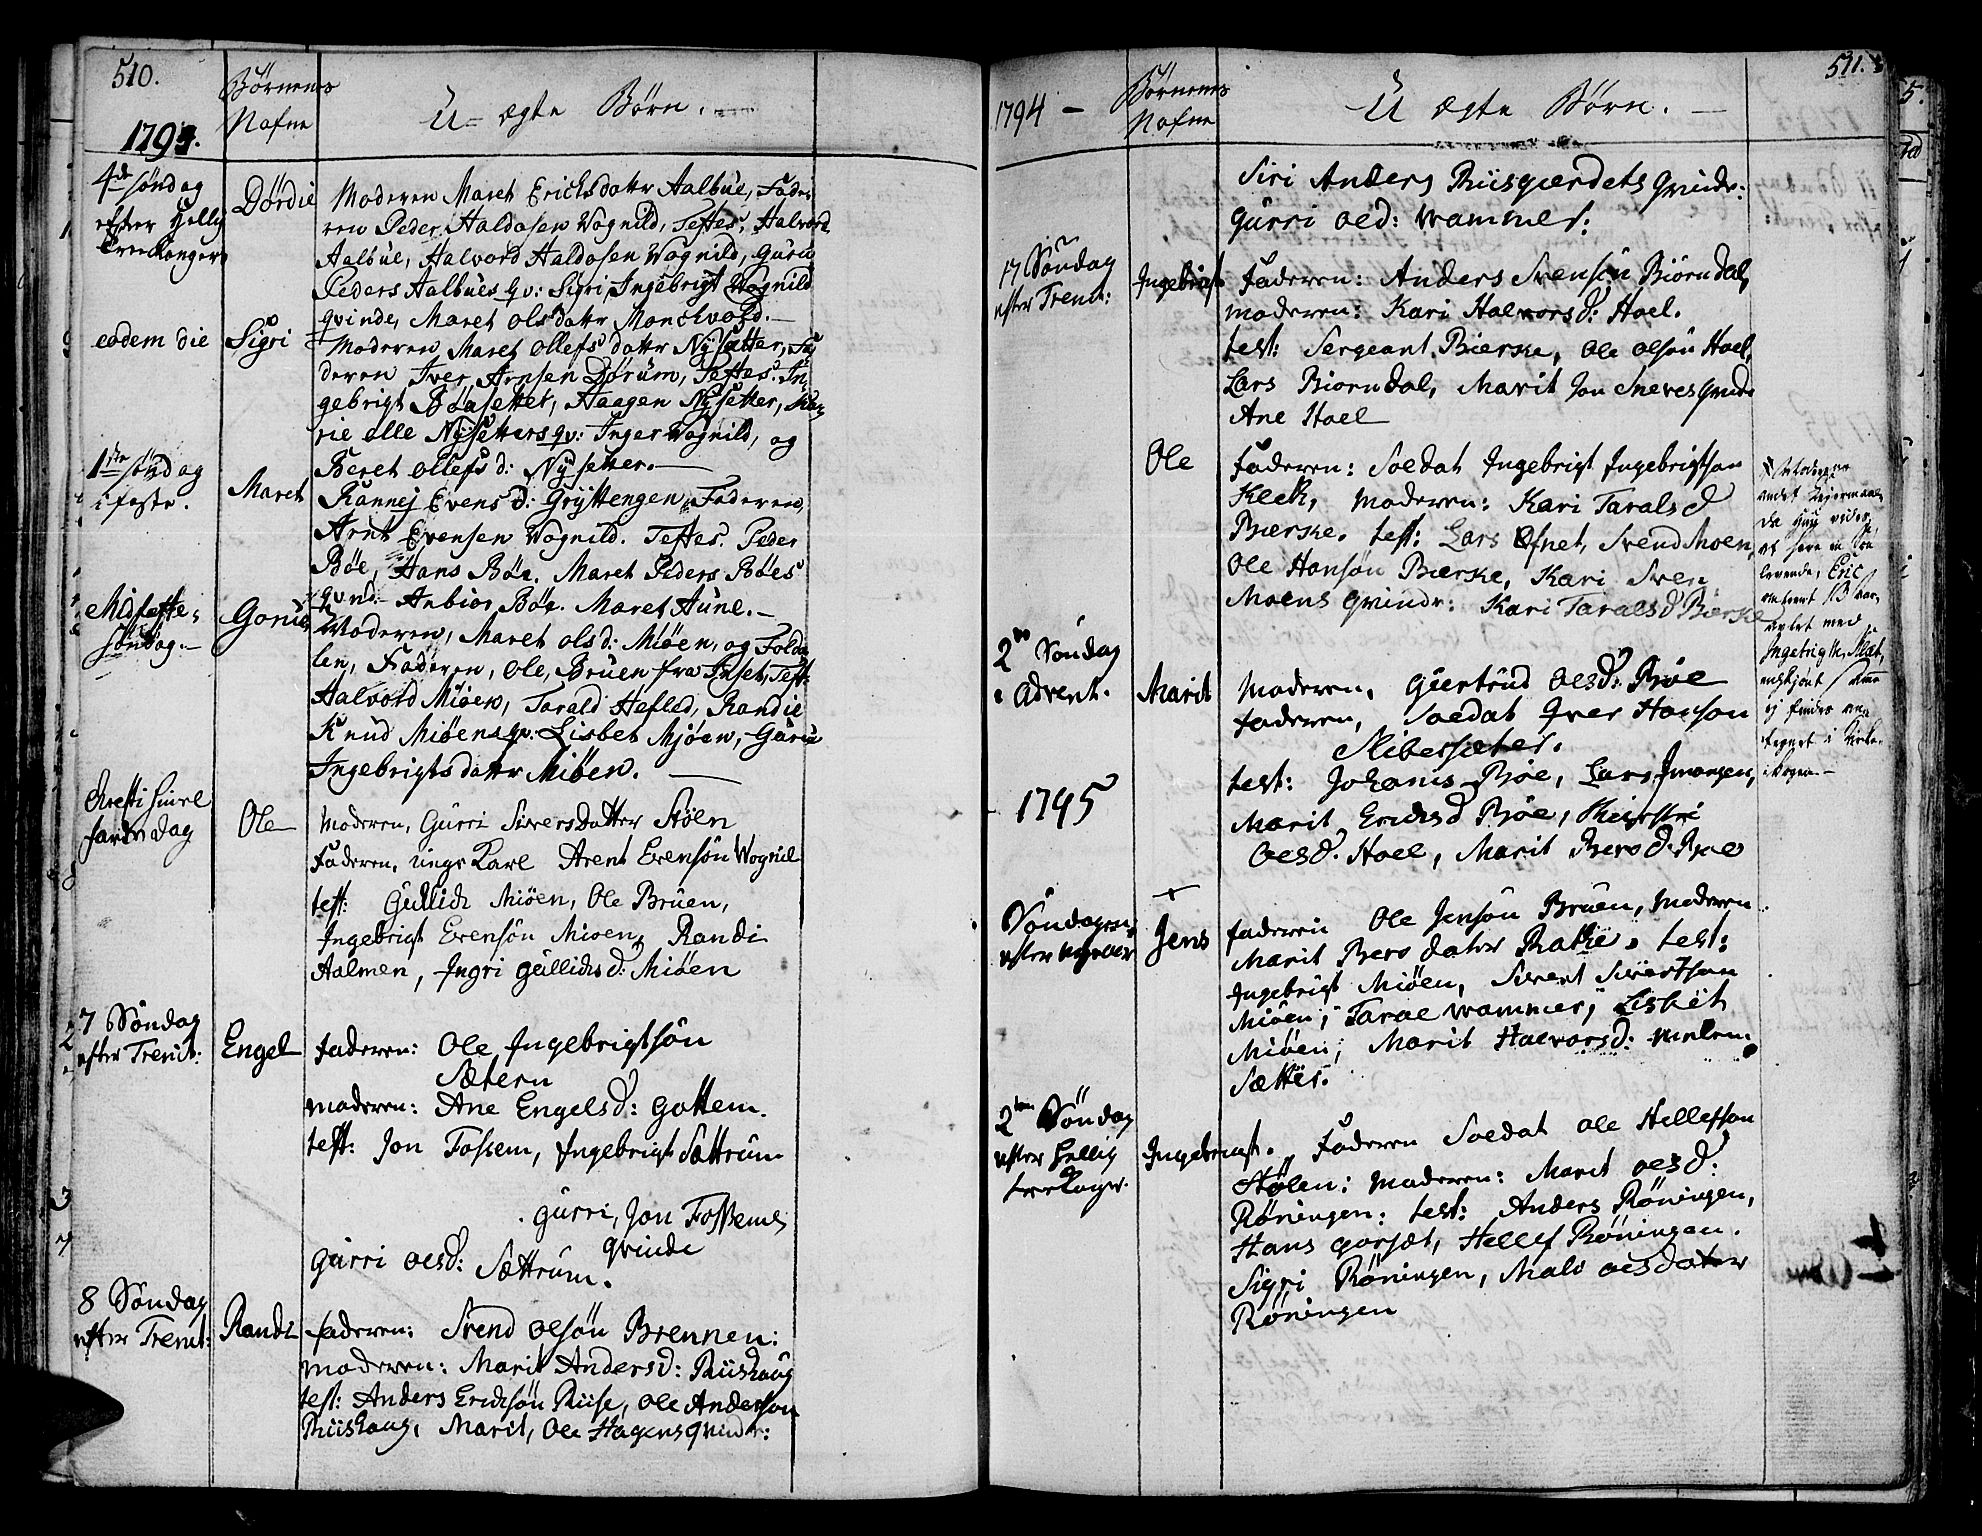 510.
1794.
Børnenes
Nafne
U-ægte Børn.
4de Søndag
efter Hellig
Tre Konger
Dördie
Moderen Maret Ericksdattr Aalbue, Fade-
ren Peder Haldosen Wognild, Testes, Halvord
Aalbue, Halvord Haldosen Wognild, Guru
Peders Aalbues qv: Sigri Ingebrigt Wognild
qvinde, Maret Olsdattr Monckvold.
eodem die
Sigri
Moderen Maret Ollefsdattr Nÿsetter, Fa-
deren Iver Arnsen Dørum, Testes. In-
gebrigt Böesetter, Haagen Nysetter, Ma-
rie olle Nÿsetters qv: Inger Wognild, og
Beret Ollefsd: Nÿsetter.
1ste Søndag
i faste.
Maret
Rannej Evensd: Grÿttengen, Faderen,
Arnt Evensen Wognild. Testes. Peder
Böe, Hans Böe. Maret Peders Böes
qvnd. Anbior Böe. Maret Aune.
Midfaste-
Søndag.
Goruu
Moderen, Maret Olsd: Miöen, og Folda-
len, Faderen, Ole Bruen fra Inset, Test:
Halvold Miöen, Tarald Hefled, Randie
Knud Miöens qv: Lisbet Mjöen, Guru
Ingebrigtsdattr Miöen.
Christi himel
farts dag
Ole
Moderen, Gurri Siversdatter Støen
Faderen, unge Karl Arent Evensön Wognild
test: Gullich Miöen, Ole Bruen,
Ingebrigt Evensön Mioen, Randi
Aalmen, Ingri Gullichsd: Miöen
7 Søndag
efter Trenit:
Engel
Faderen: Ole Ingebrigtsön
Sætern
moderen: Ane Engelsd: Gottem.
test: Jon Fossem, Ingebrigt Sættrum
Gurri, Jon Fossems
qvinde
Gurri Olsd: Sættrum.
8 Søndag
efter Trenit:
Randi
faderen: Svend Olsön Brennen:
moderen: Marit Andersd: Riishaug
test: Anders Erichsön Riise, Ole Anderson
Riishaug, Marit, Ole Hagens qvinde:
511.
1794 -
Børnenes
Nafne
U ægte Børn.
Siri Anders Riisgærdets qvinde:
Gurri Old: Wammer:
17 Søndag
efter Trenit:
Ingebrigt
Faderen: Anders Svensön Biörndal,
moderen: Kari Halvorsd: Hoel.
test: Sergeant Bierske, Ole Olsön Hoel,
Lars Biorndal, Marit Jon Sneves qvinde
Ane Hoel
Ole
Faderen: Soldat Ingebrigt Ingebrigtson
Kleck, moderen: Kari Taralsd
Bierske. test: Lars Øfnet, Svend Moen,
Ole Hansön Bierske, Kari Sven
Moens qvinde: Kari Taralsd Bierske
Moderens
andet Leiermaal,
da hun vides
at have en Søn
levende, Eric
omtrent 13 aar,
avlet med
Ingebrigth Slæt,
endskjønt
ej findes an-
tegnet i Kirke-
bogen.
2den Søndag
i Advent.
Marit
Moderen, Giertrud Olsd: Böe
faderen, Soldat Iver Hanson
Slibersæter.
test: Johanis Böe, Lars Imangen,
Marit Erichsd Böe, Kierstri
Olsd. Hoel, Marit Bersd: Boe
1795
Søndagen
efter nyeaar
Jens
faderen Ole Jenson Bruen, moderen
Marit Bersdater Ratke. test:
Ingebrigt Miöen, Sivert Sivertson
Miöen, Taral Wammer, Lisbet
Miöen, Marit Halvorsd: Melem
Sætter.
2den Søndag
efter Hellig
treKonger.
Ingebrigt.
Faderen Soldat Ole Hellefson
Stölen: moderen: Marit Olsd:
Röningen: test: Anders Röningen,
Hans Gorsæt, Hellef Röningen.
Sigri Röningen, Malo Olsdater
Röningen